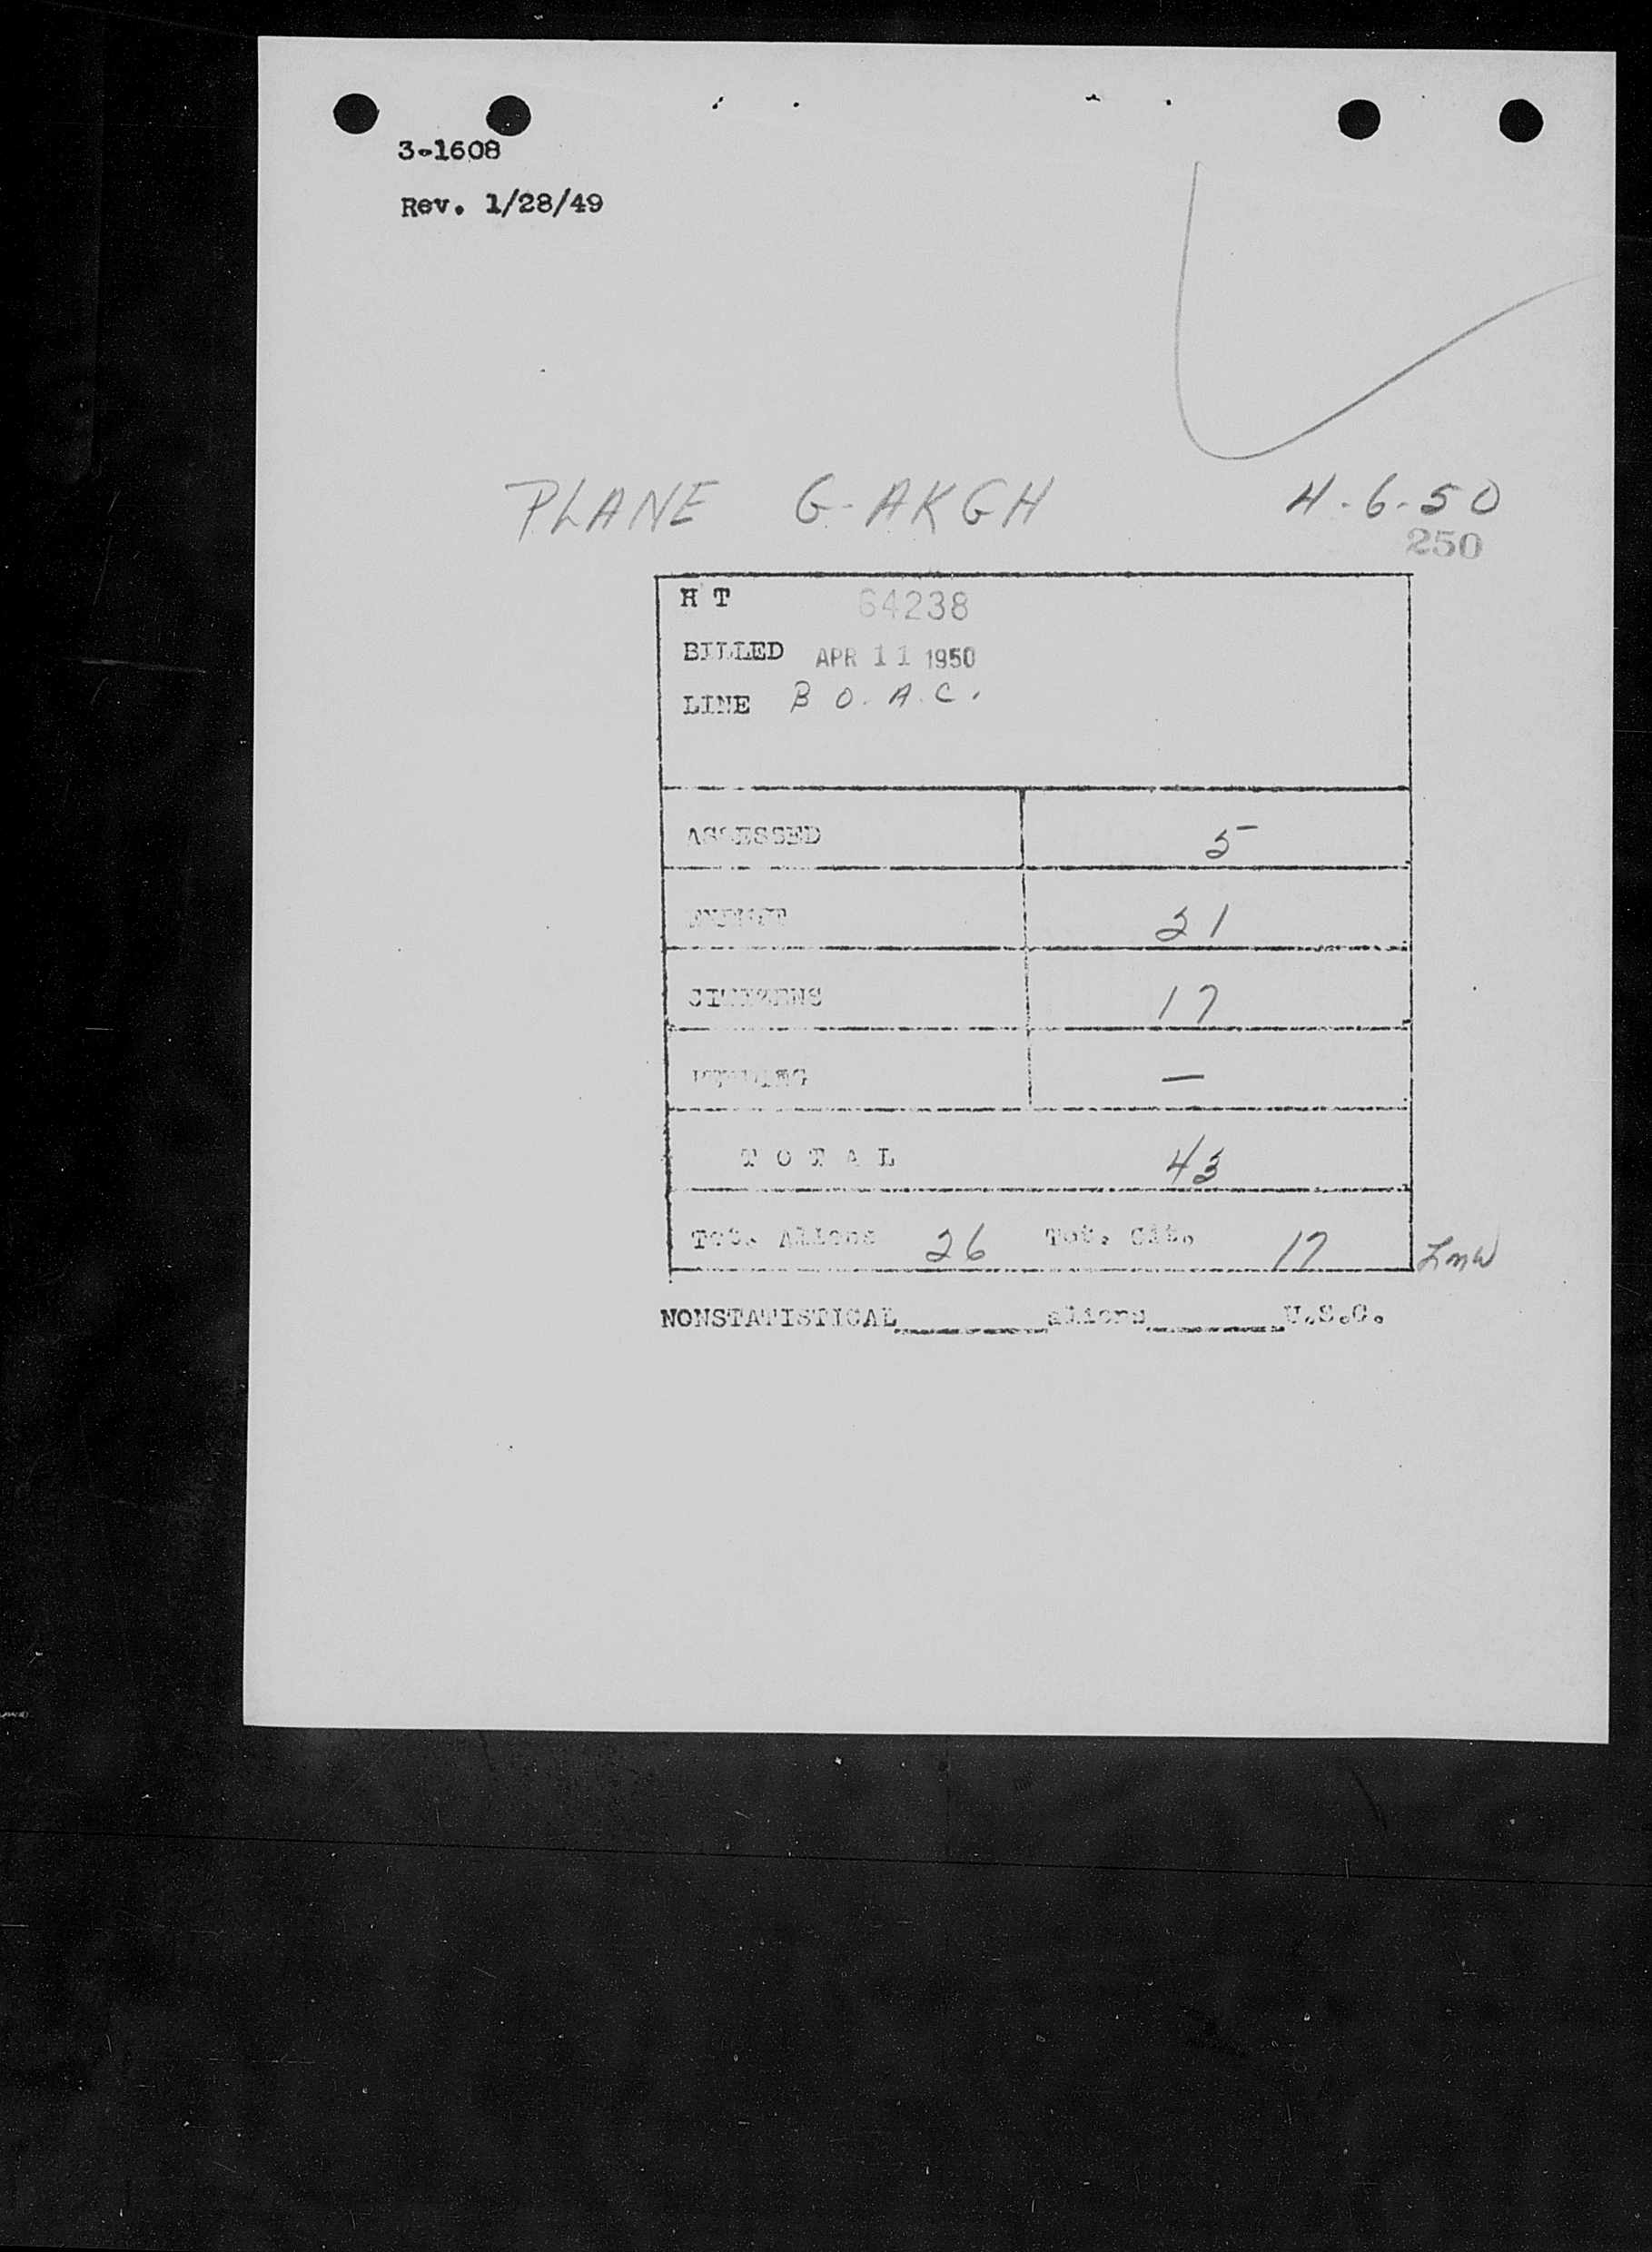 3-1608
Rev. 1/28/49
PLANE G-AKGH 4-6-50
250
H T 64238
BILLED APR 11 1950
LINE B O. A. C.
ASSESSED 5
EXEMPT 21
CITIZENS 17
PENDING —
T O T A L 43
Tot. Aliens 26 Tot. Cit. 17 LMW
NONSTATISTICAL________aliens________U.S.C.